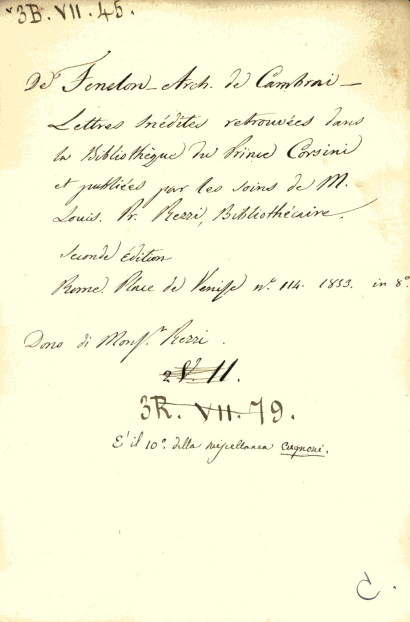 3B. VII. 45.
De Fenelon - Arch. de Cambrai -
Lettres inédites retrouvées dans
la Bibliothèque du Prince Corsini
et publiées par les soins de M.
Louis. Pr. Rezzi, Bibliothécaire.
Seconde édition
Rome Place de Venise n.º 114. 1853. in 8º
Dono di Mons.r Rezzi.
3R. VII. 79.
E' il 10º. della miscellanea Cugnoni.
C.